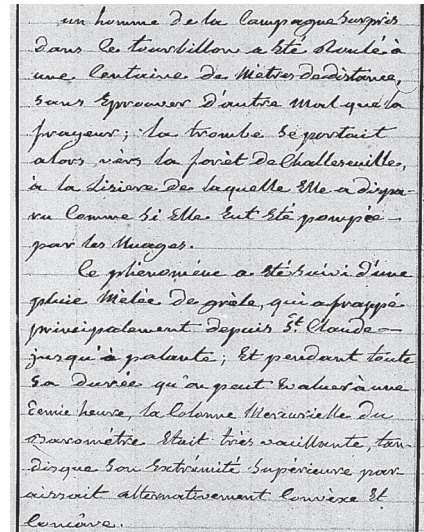 un homme de la Campagne Surpris
dans le tourbillon a Eté Roulé à
une Centaine de Mètres de distance,
sans Eprouver d'autre Mal que la
frayeur ; la trombe se portait
alors vèrs la forèt de Challeseuille,
à la Lisiere de laquelle Elle a dispa-
ru Comme Si Elle Eut Eté pompée
par les Nuages.
Ce phénomène a Eté Suivi d'une
pluie Mèlée de grèle, qui a frappé
principalement depuis St. Claude
jusqu'à palante ; Et pendant toute
Sa durée qu'on peut Evaluer à une
Demie heure, la Colonne Mercurielle du
Baromètre Etait très vaillante, tan-
disque Son Extrémité Supérieure par-
aissait alternativement Convèxe Et
Concâve.